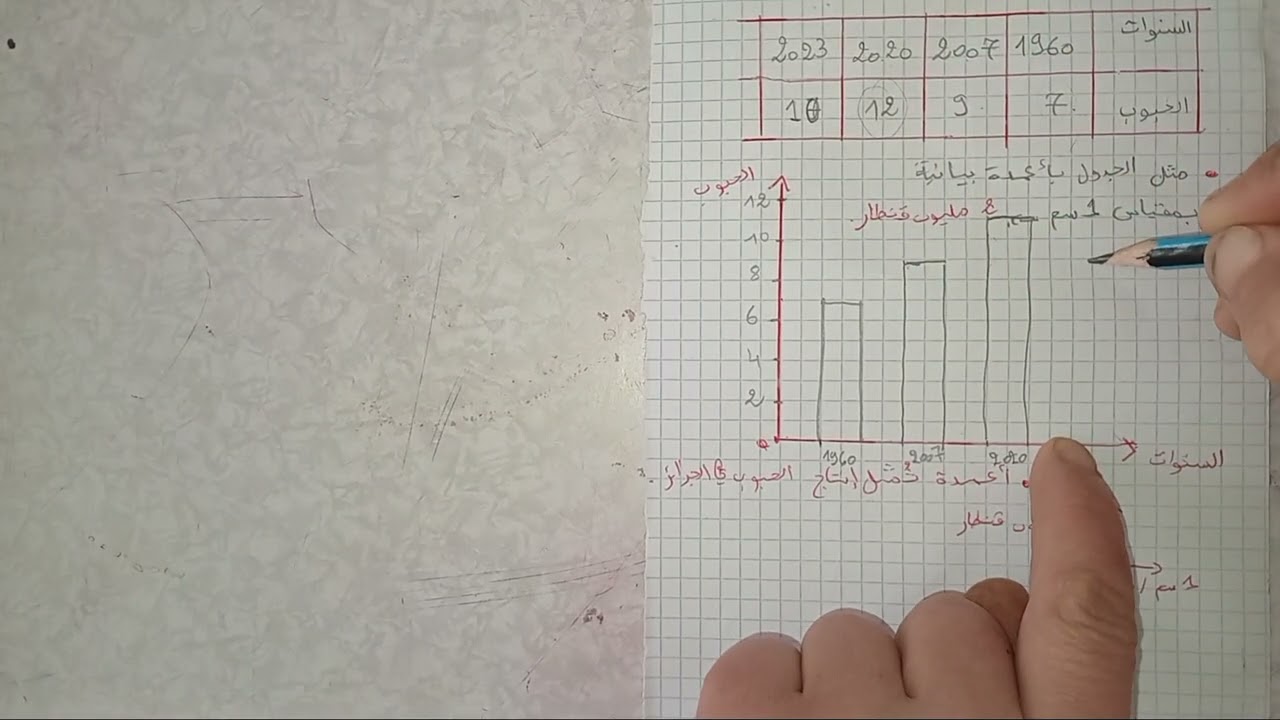 السنوات 1960 2007 2020 2023
الحبوب 7 9 12 10
• مثل الجدول بأعمدة بيانية
بمقياس 1 سم مليون قنطار.
الحبوب
12
10
8
6
4
2
0
1960 2007 2020
السنوات
• أعمدة تمثل إنتاج الحبوب في الجزائر.
قنطار
1 سم